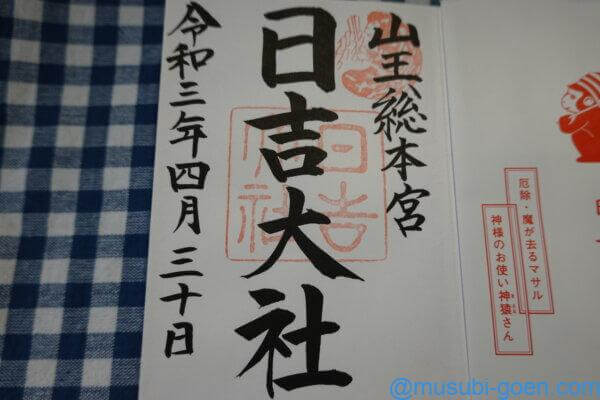 山王総本宮
日吉大社
令和三年四月三十日
日吉大社
厄除・魔が去るマサル
神様のお使い神猿さん
@musubi-goen.com